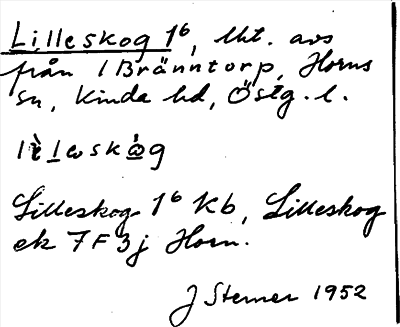 Lilleskog 1⁶, lht. avs
från 1 Bränntorp, Horns
sn, Kinda hd, Östg. l.
Lilleskog 1⁶ Kb, Lilleskog
ek 7F3j Horn.
J Sterner 1952